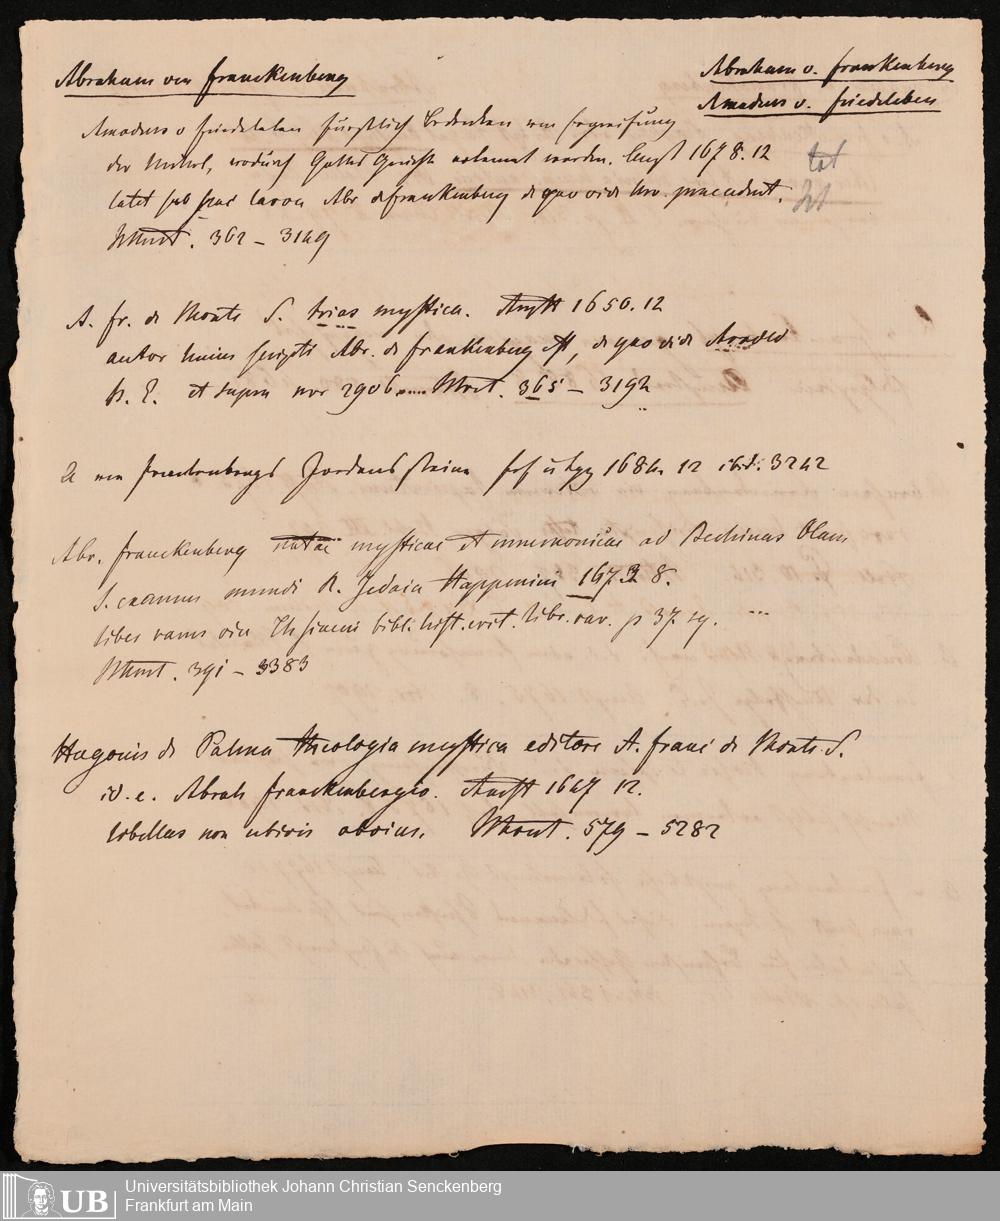 Abraham von Franckenberg
Abraham v. Frankenberg
Amadeus v. Friedeleben
Amadeus v Friedeleben Bedenken von Ergreifung
der Mittel, wodurch Gottes erkannt werden. 1678. 12
latet sub hac larva Abr de Frankenberg de quo vide praecedent.
362 – 3149
A. fr. de Monte S. trias mystica. Amst 1650. 12
autor huius scripti Abr. de Frankenberg est, de quo vide Arnold
K. E. et supra nro 2906 365 – 3192
A von Franckenbergs Jordans steine 1684 12 ibid. 3242
Abr. Franckenberg notae mysticae et mnemonicae ad Bechinas Olam
S. examen mundi R. Jedaia Happenini 1673 8.
liber rarus vid bibl. hist. crit. libr. rar. p 37 sq.
391 – 3383
Hugonis de Palma theologia mystica editore A. Franc de Monte S.
id. e. Abrah Franckenbergio. Amst 1647 12.
libellus non ubivis obvius. 579 – 5282
UB
Universitätsbibliothek Johann Christian Senckenberg
Frankfurt am Main